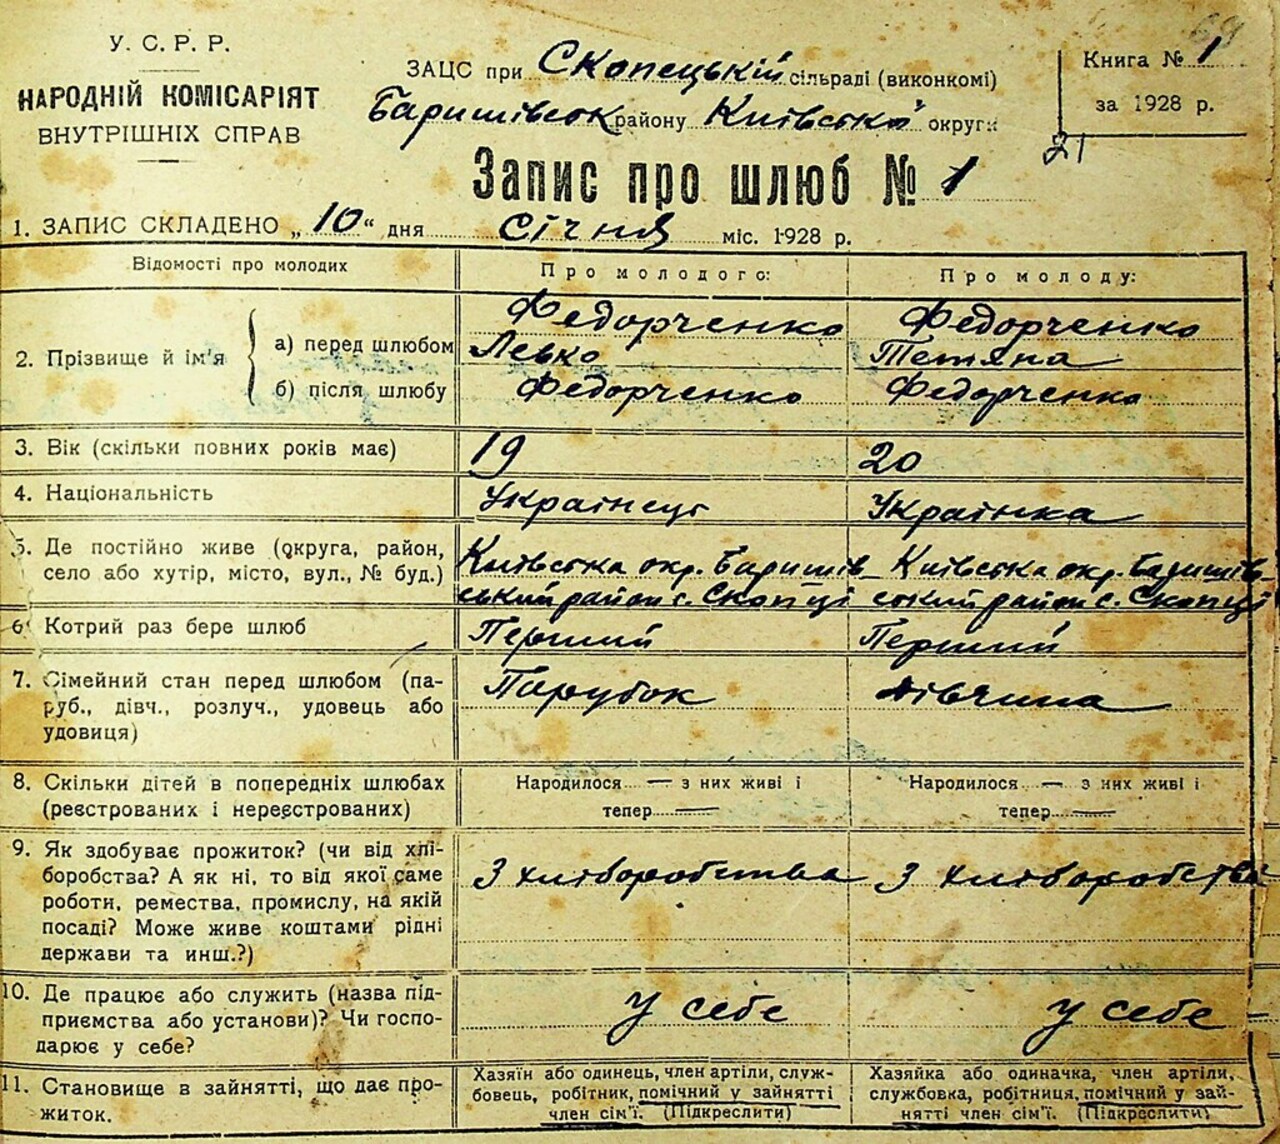 У. С. Р. Р.
НАРОДНІЙ КОМІСАРІЯТ
ВНУТРІШНІХ СПРАВ
ЗАЦС при Скопецькій сільраді (виконкомі)
Баришівськ району Київської округи
Книга № 1
за 1928 р.
21
Запис про шлюб № 1
1. ЗАПИС СКЛАДЕНО „10“ дня січня міс. 1928 р.
Відомості про молодих
Про молодого:
Про молоду:
2. Прізвище й ім'я
а) перед шлюбом
Федорченко
Левко
Федорченко
Тетяна
б) після шлюбу
Федорченко
Федорченко
3. Вік (скільки повних років має)
19
20
4. Національність
Українець
Українка
5. Де постійно живе (округа, район,
село або хутір, місто, вул., № буд.)
Київська окр. Баришів-
ський район с. Скопці
Київська окр. Баришів-
ський район с. Скопці
6. Котрий раз бере шлюб
Перший
Перший
7. Сімейний стан перед шлюбом (па-
руб., дівч., розлуч., удовець або
удовиця)
Парубок
Дівчина
8. Скільки дітей в попередніх шлюбах
(реєстрованих і нереєстрованих)
Народилося — з них живі і
тепер —
Народилося — з них живі і
тепер —
9. Як здобуває прожиток? (чи від хлі-
боробства? А як ні, то від якої саме
роботи, ремества, промислу, на якій
посаді? Може живе коштами рідні
держави та инш.?)
З хліборобства
З хліборобства
10. Де працює або служить (назва під-
приємства або установи)? Чи госпо-
дарює у себе?
у себе
у себе
11. Становище в зайнятті, що дає про-
житок.
Хазяїн або одинець, член артіли, служ-
бовець, робітник, помічний у зайнятті
член сім'ї. (Підкреслити)
Хазяйка або одиначка, член артіли,
службовка, робітниця, помічний у зай-
нятті член сім'ї. (Підкреслити)